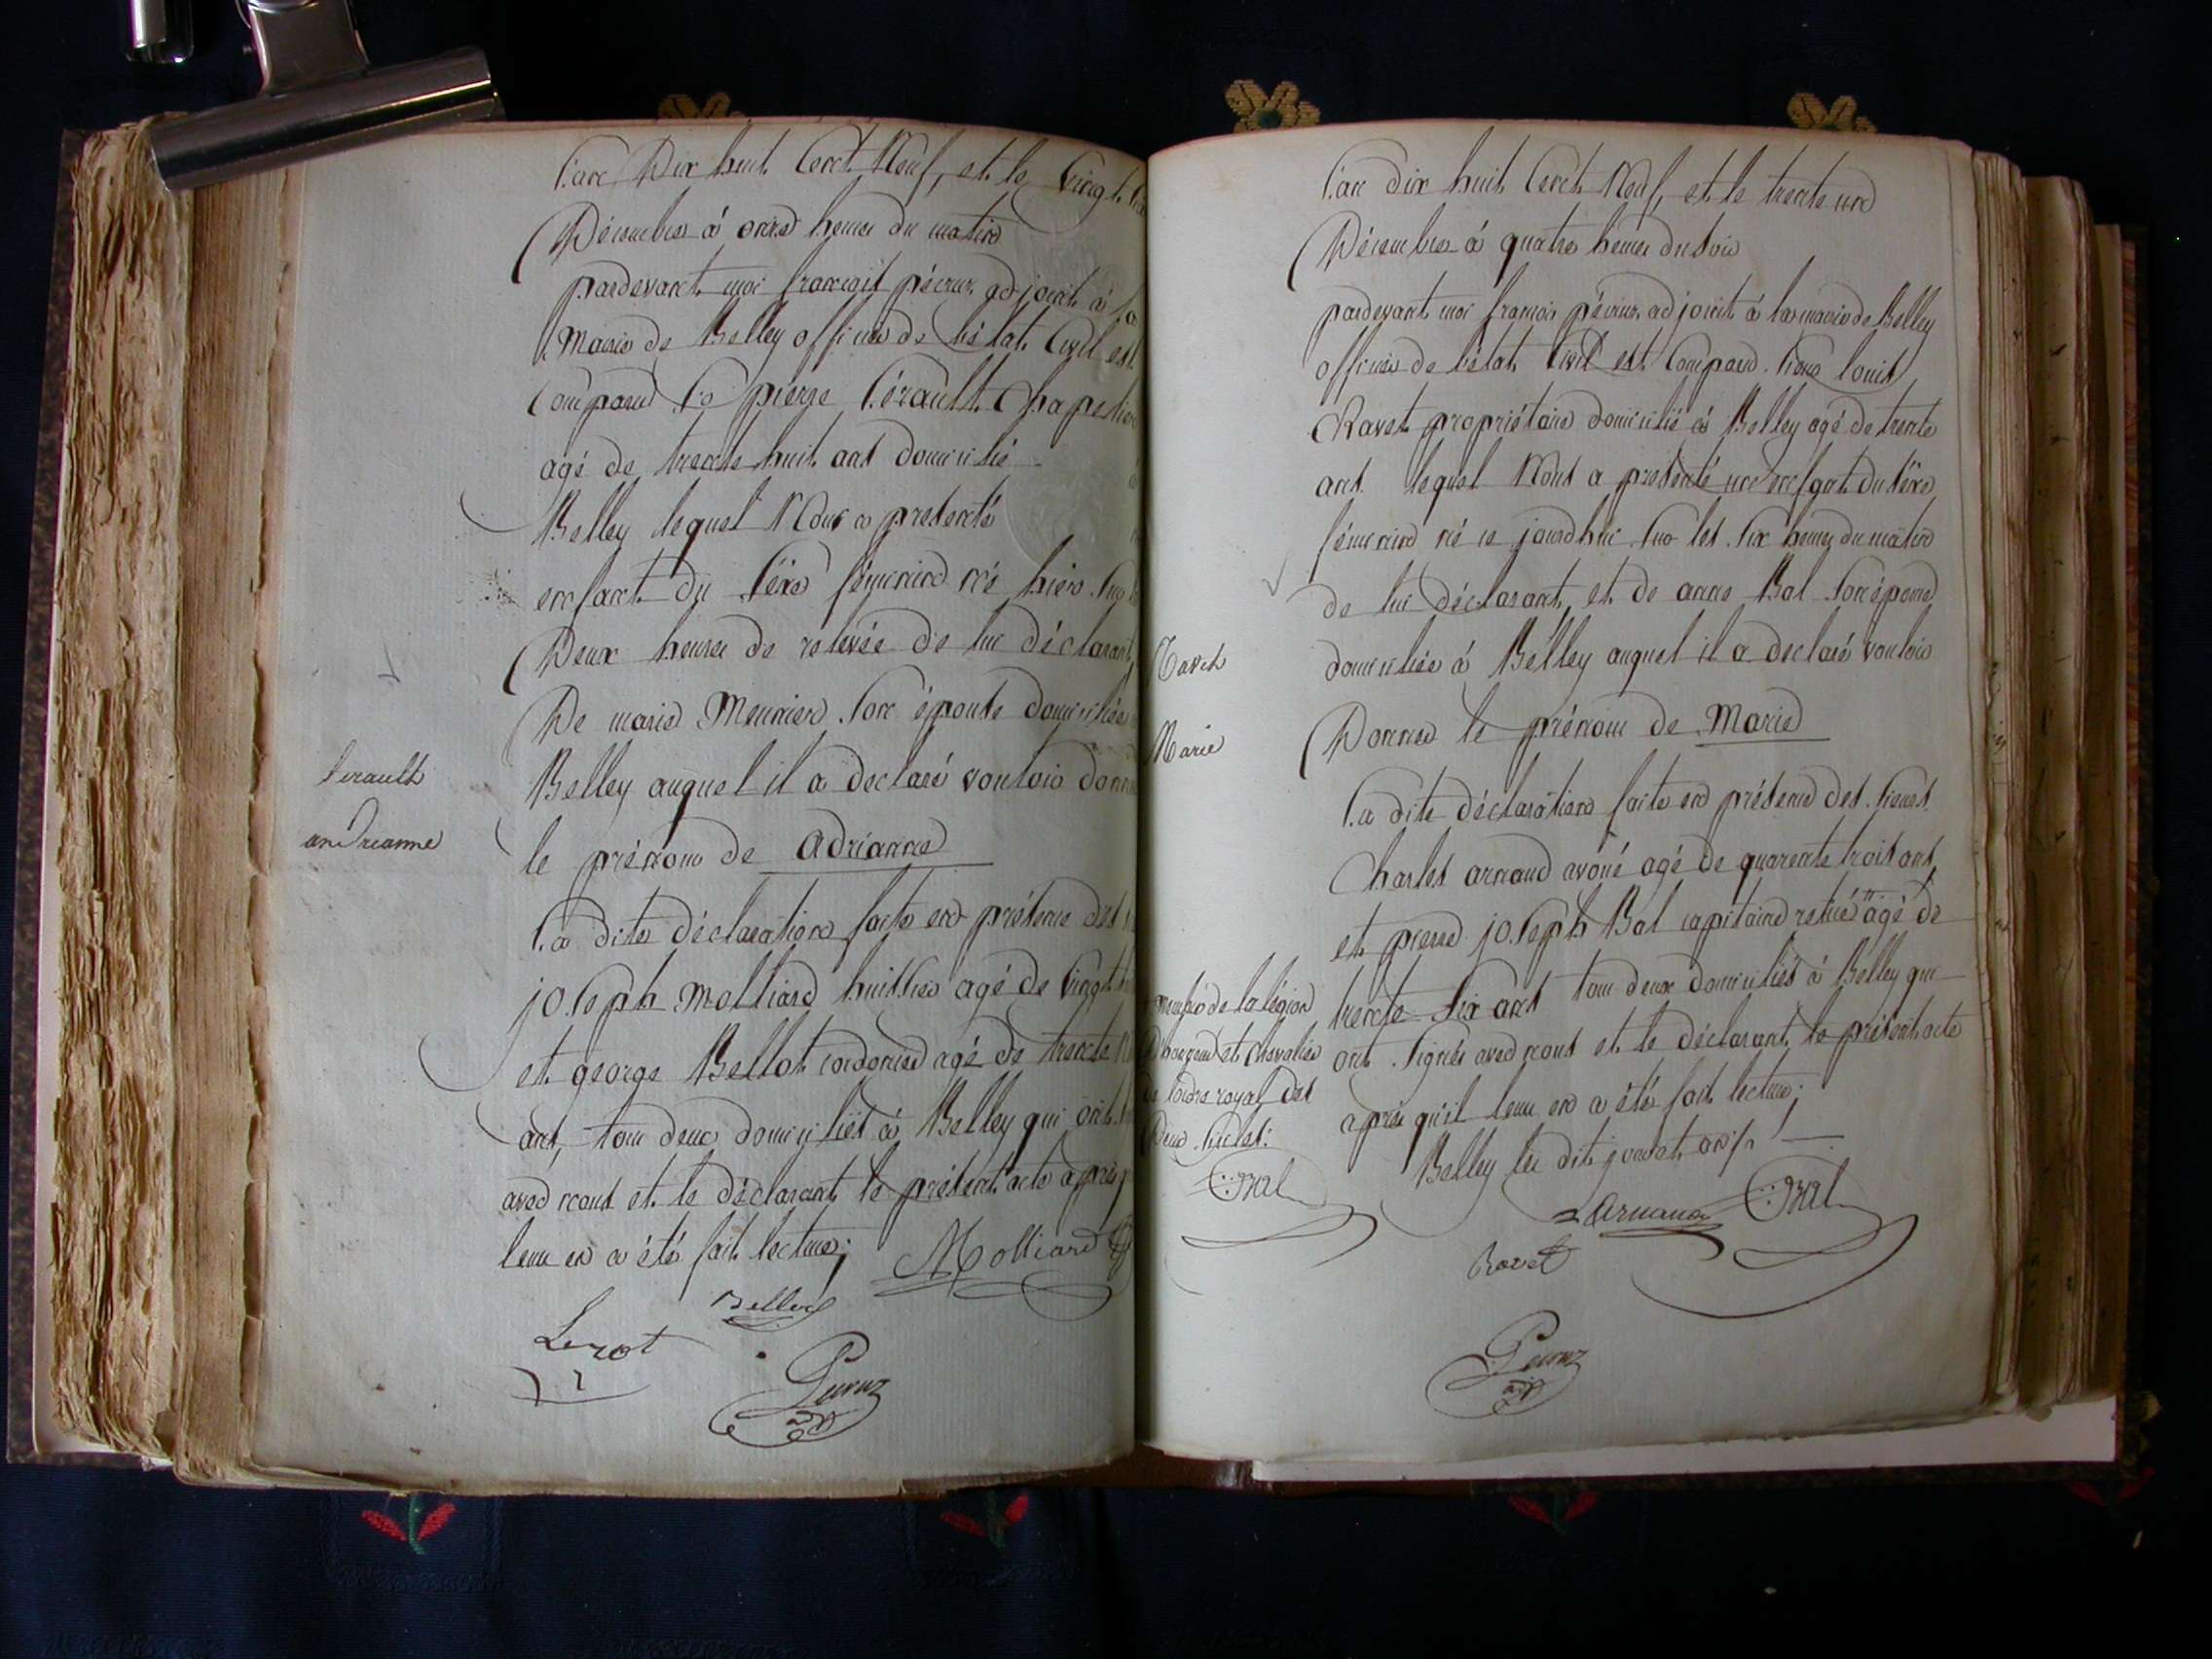 L'an Dix huit Cent Neuf, et le Vingt
Décembre à onze heures du matin
pardevant moi françois pécour adjoint à la
Mairie de Belley officier de l'état Civil est
Comparu Sr pierre Lérault Chapelier
agé de trente huit ans domicilié
Belley lequel Nous a presenté
enfant du séxe féminin né hier sur
Deux heures de relevée de lui déclarant
De marie Meunier son épouse domiciliée
Belley auquel il a declaré vouloir donner
le prénom de adrianne
La dite déclaration faite en présence des
joseph Molliard huissier agé de Vingt
et george Bellot cordonier agé de trente
ans, tous deux domiciliés à Belley qui ont
avec nous et le déclarant le présent acte après
leur en a été fait lecture;
Molliard
Bellot
Lerot
Lerault
andrianne
L'an dix huit Cent Neuf, et le trente un
Décembre à quatre heures du soir
pardevant moi françois pécour adjoint à la mairie de Belley
officier de l'état Civil est Comparu sieur louis
Ravet propriétaire domicilié à Belley agé de trente
ans lequel Nous a presenté un enfant du séxe
féminin né ce jourd'hui sur les six heures du matin
de lui déclarant et de anne Bal son épouse
domiciliée à Belley auquel il a declaré vouloir
Donner le prénom de Marie
La dite déclaration faite en présence des sieurs
Charles arnaud avoué agé de quarente trois ans
et pierre joseph Bal capitaine retiré agé de
trente six ans tous deux domiciliés à Belley qui
ont signés avec nous et le déclarant le présent acte
après qu'il leur en a été fait lecture;
Belley les dits jour et an
Ravet
Marie
membre de la légion
D'honneur et chevalier
de l'ordre royal des
Deux siciles:
Bal
Arnaud
Bal
Ravet